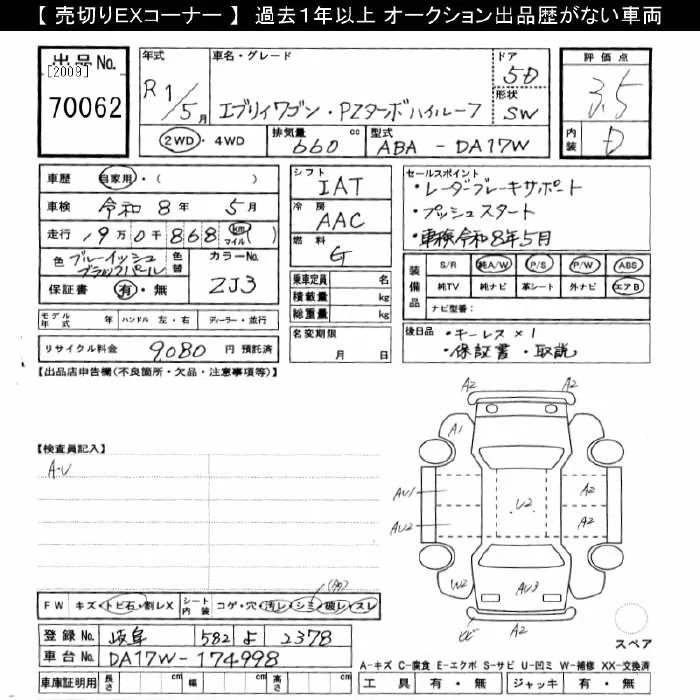 【 売切りEXコーナー 】 過去1年以上 オークション出品歴がない車両
出品No. [2009] 70062
年式 R1/5月
車名・グレード エブリィワゴン・PZターボハイルーフ
ドア 5D
形状 SW
評価点 3.5
内装 D
2WD・4WD
排気量 660 cc
型式 ABA - DA17W
車歴 自家用・( )
車検 令和 8年 5月
走行 19万0千868 km マイル ( )
色 ブルーイッシュブラックパール
色替
カラーNo. ZJ3
保証書 有・無
モデル年式 年 ハンドル 左・右 ディーラー・並行
リサイクル料金 9,080 円 預託済
シフト IAT
冷房 AAC
燃料 G
乗車定員 名
積載量 kg
総重量 kg
名変期限 月 日
セールスポイント
・レーダーブレーキサポート
・プッシュスタート
・車検令和8年5月
装備品 S/R 純A/W P/S P/W ABS
純TV 純ナビ 革シート 外ナビ エアB
ナビ型番:
後日品 ・キーレス×1
・保証書・取説
【出品店申告欄(不良箇所・欠品・注意事項等)】
【検査員記入】
A-U
A2 A2
A1
AU1 A2
U2
AU2 A2
W2 AU3 A2
A2
FW キズ・トビ石・割レX シート内装 コゲ・穴・汚レ・シミ・破レ・スレ
登録No. 岐阜 582 よ 2378
車台No. DA17W-174998
車庫証明用 長さ cm 幅 cm 高さ cm
スペア
A-キズ C-腐食 E-エクボ S-サビ U-凹ミ W-補修 XX-交換済
工具 有・無 ジャッキ 有・無